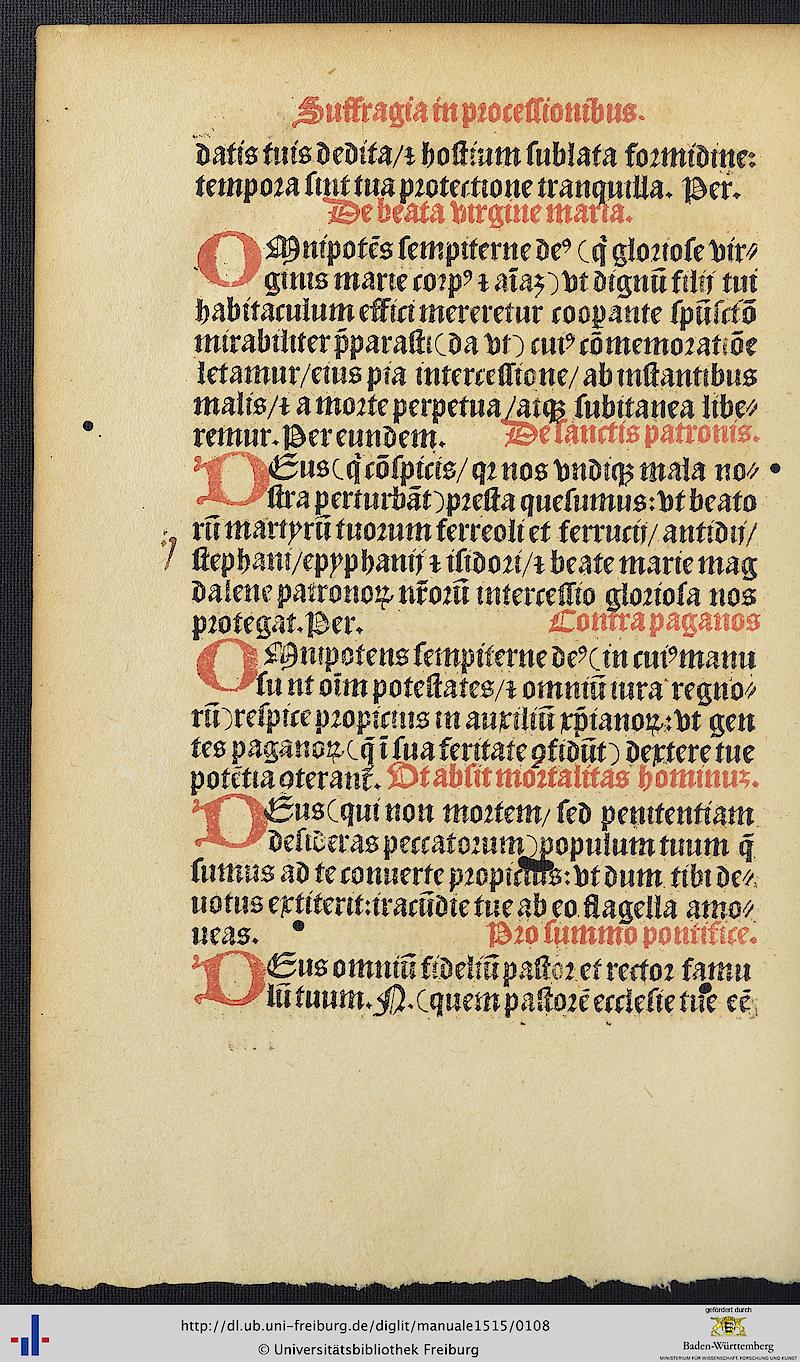 Suffragia in processionibus.
datis tuis dedita/⁊ hostium sublata formidine:
tempora sint tua protectione tranquilla. Per.
De beata virgine maria.
OMnipotẽs sempiterne deꝰ (q̃ gloriose vir⸗
ginis marie corpꝰ ⁊ aĩaꝫ) vt dignũ filij tui
habitaculum effici mereretur cooꝑante spũsctõ
mirabiliter p̃parasti (da vt) cuiꝰ cõmemoratiõe
letamur/eius pia intercessione/ab instantibus
malis/⁊ a morte perpetua/atqꝫ subitanea libe⸗
remur. Per eundem. De sanctis patronis.
DEus (q̃ cõspicis/ qꝛ nos vndiqꝫ mala no⸗
stra perturbãt) presta quesumus: vt beato
rũ martyrũ tuorum ferreoli et ferrucij/ antidij/
stephani/epyphanij ⁊ isidori/⁊ beate marie mag
dalene patronoꝝ nr̃orũ intercessio gloriosa nos
protegat. Per. Contra paganos
OMnipotens sempiterne deꝰ (in cuiꝰ manu
sunt oĩm potestates/⁊ omniũ iura regno⸗
rũ) respice propicius in auxiliũ xp̃ianoꝝ: vt gen
tes paganoꝝ (q̃ ĩ sua feritate ꝯfidũt) dextere tue
potẽtia ꝯterant᷑. Vt absit mortalitas hominuꝫ.
DEus (qui non mortem/ sed penitentiam
desideras peccatorum) populum tuum q̃
sumus ad te conuerte propicius: vt dum tibi de⸗
uotus extiterit: iracũdie tue ab eo flagella amo⸗
ueas. Pro summo pontifice.
DEus omniũ fideliũ pastor et rector famu
lũ tuum. N. (quem pastorẽ ecclesie tue eẽ
http://dl.ub.uni-freiburg.de/diglit/manuale1515/0108
© Universitätsbibliothek Freiburg
gefördert durch
Baden-Württemberg
MINISTERIUM FÜR WISSENSCHAFT, FORSCHUNG UND KUNST